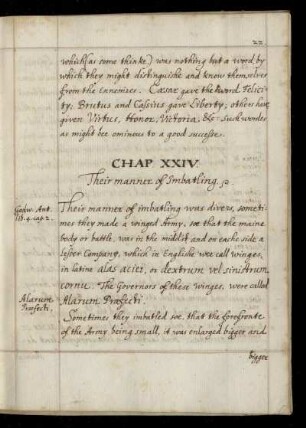 22
which (as some thinke) was nothing but a word by
which they might distinguishe and know themselves
from the Ennemies. Cæsar gave the word Felici-
ty; Brutus and Cassius gave Liberty; others have
given Virtus, Honor, Victoria, &c. Such words
as might bee ominous to a good successe.
CHAP XXIV
Their manner of Imbatling
Godw. Ant.
lib. 4. cap 2.
Their manner of imbatling was divers, someti-
mes they made a winged Army, soe that the maine
body or battle, was in the middst and on eache side a
lesser Company, which in Englishe wee call winges,
in latine alas aciei, or dextrum vel sinistrum
cornu. The Governors of these winges, were called
Alarum Præfecti.
Alarum
Præfecti.
Sometimes they imbatled soe, that the forefronte
of the Army being small, it was enlarged bigger and
bigger